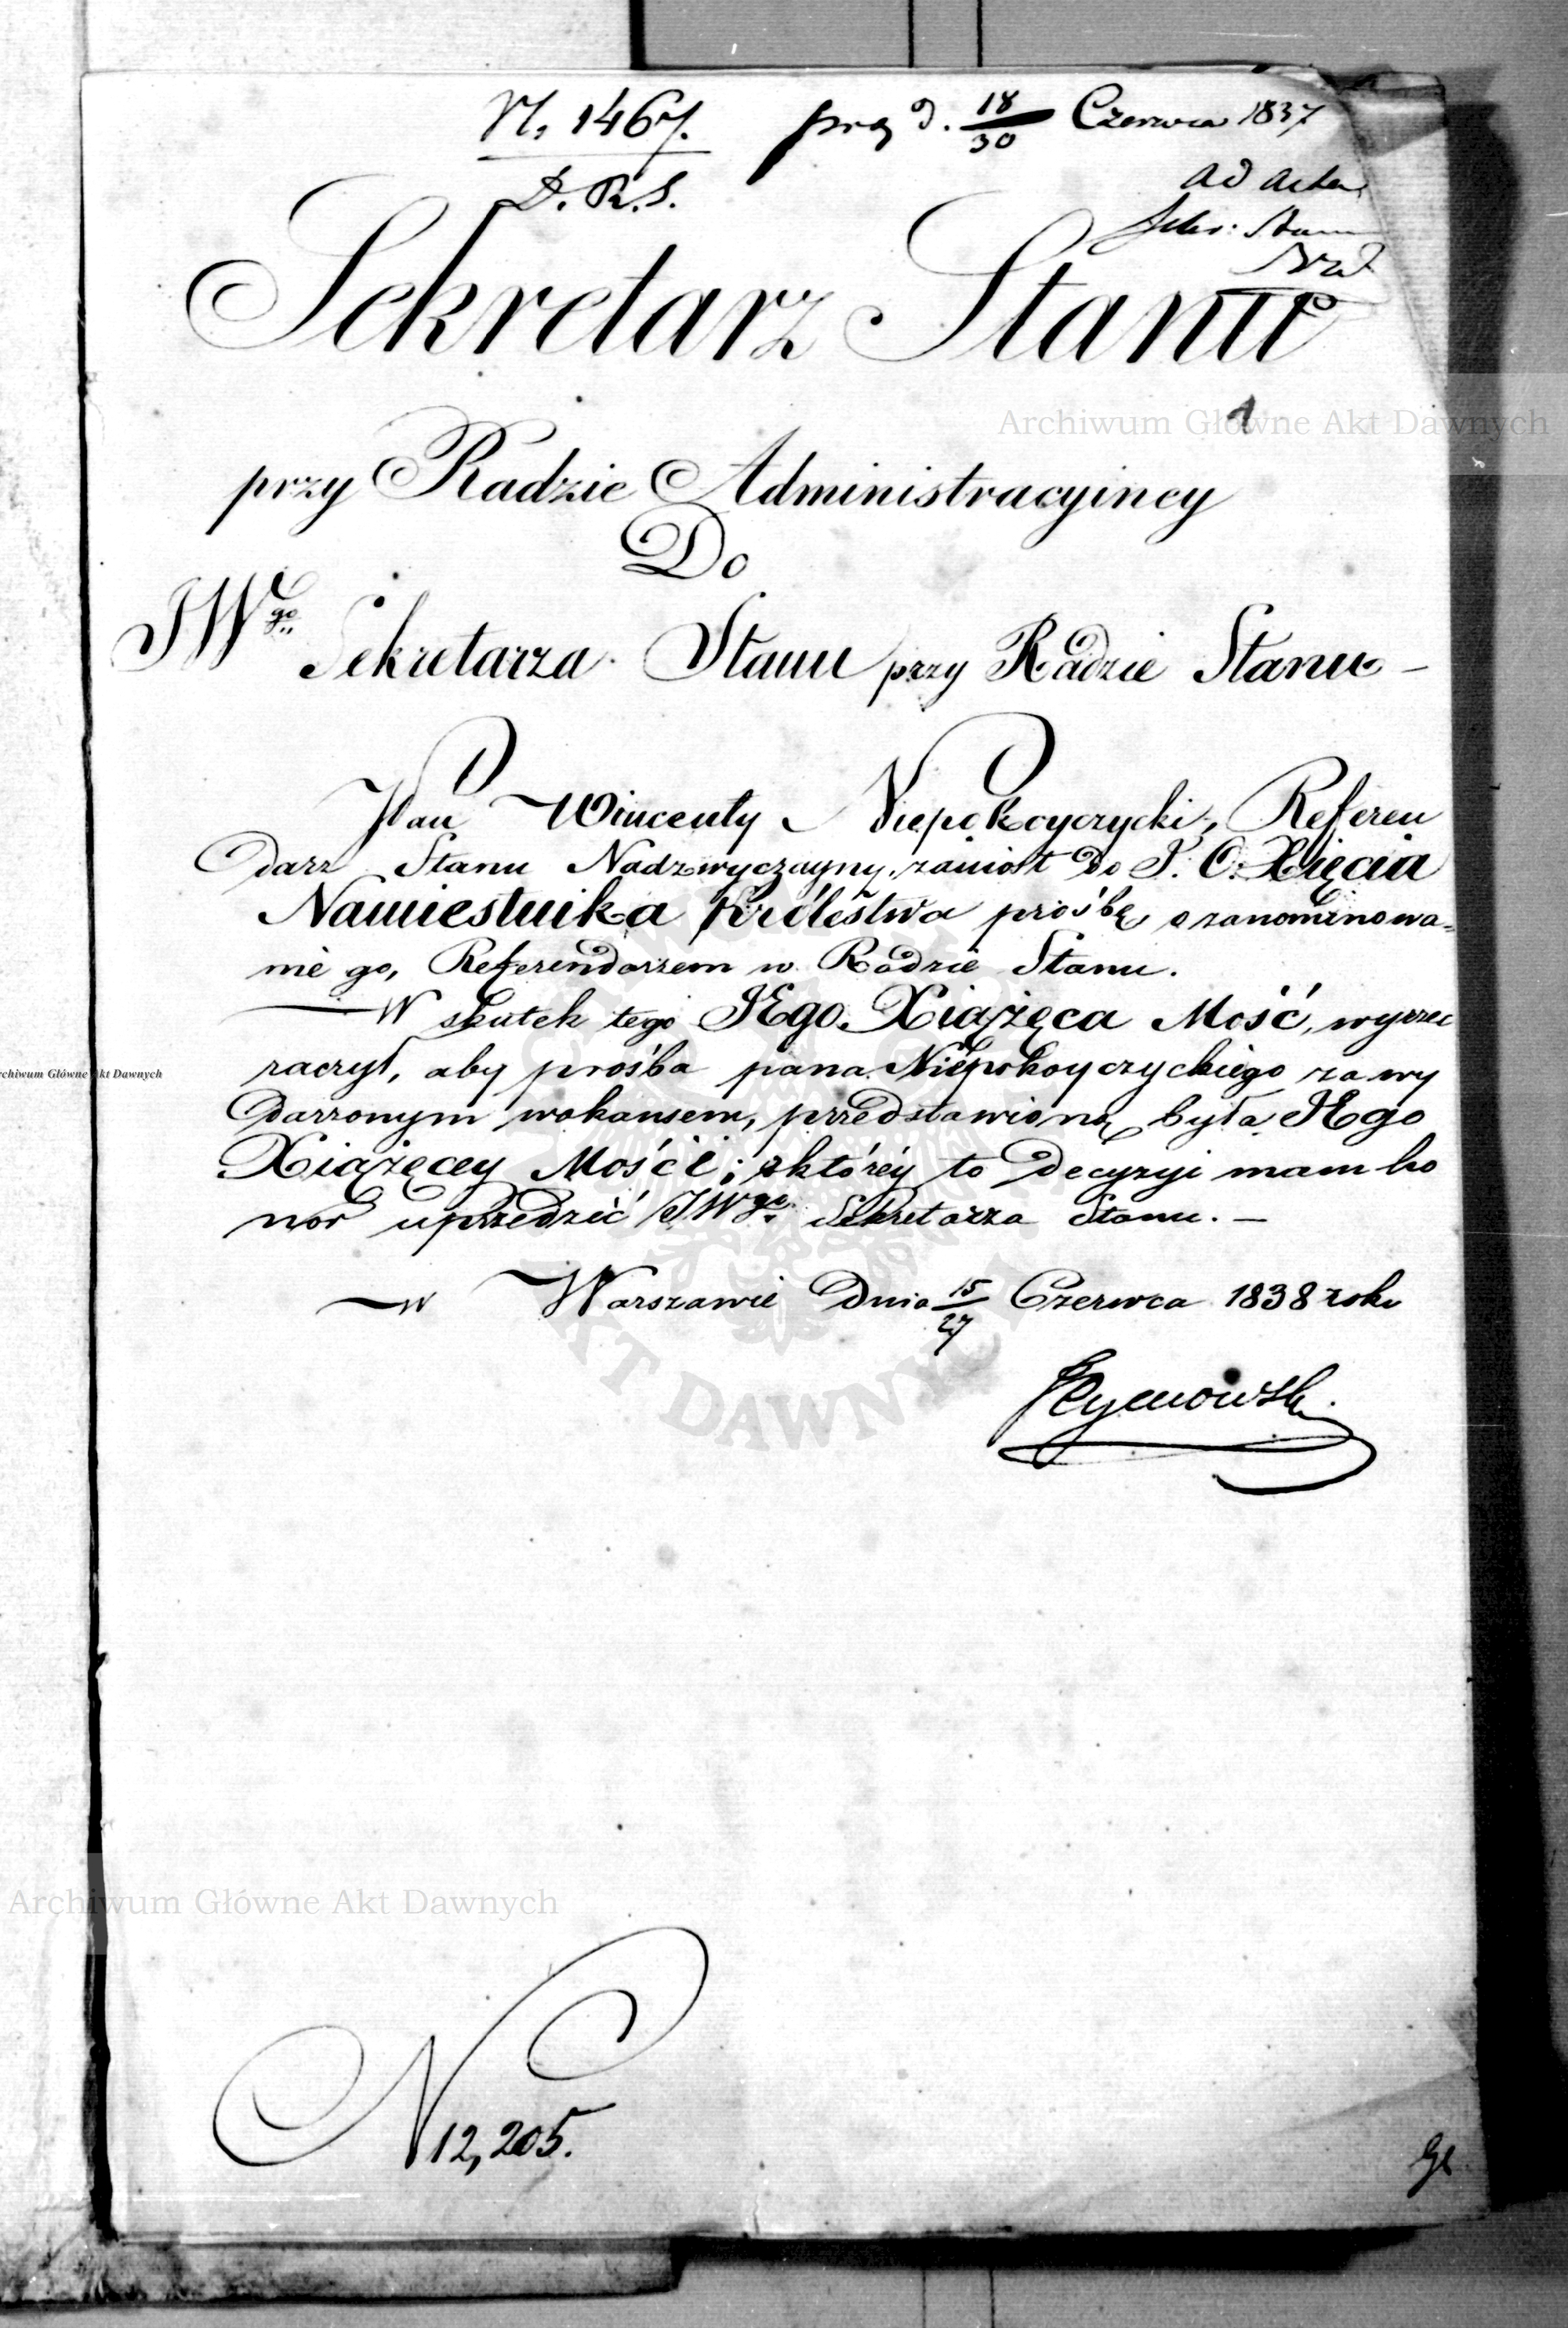 N. 1467. prez d. 18/30 Czerwca 1837
D. R. S.
ad acta
Stanu
Sekretarz Stanu
1
Archiwum Główne Akt Dawnych
przy Radzie Administracyiney
Do
JWgo Sekretarza Stanu przy Radzie Stanu –
Pan Wincenty Niepokoyczycki, Referen
darz Stanu Nadzwyczayny, zaniosł do J. O. Xięcia
Namiestnika Królestwa prośbę o zanominowa-
nie go, Referendarzem w Radzie Stanu.
W skutek tego JEgo Xiążęca Mość, wyrzec
raczył, aby prośba pana Niepokoyczyckiego za wy
darzonym wakansem, przedstawioną była JEgo
Xiążęcey Mości; o któréy to decyzyi mam ho
nor uprzedzić JWgo Sekretarza Stanu. –
w Warszawie dnia 15/27 Czerwca 1838 roku
Archiwum Główne Akt Dawnych
AKT DAWNYCH
Archiwum Główne Akt Dawnych
N 12,205.